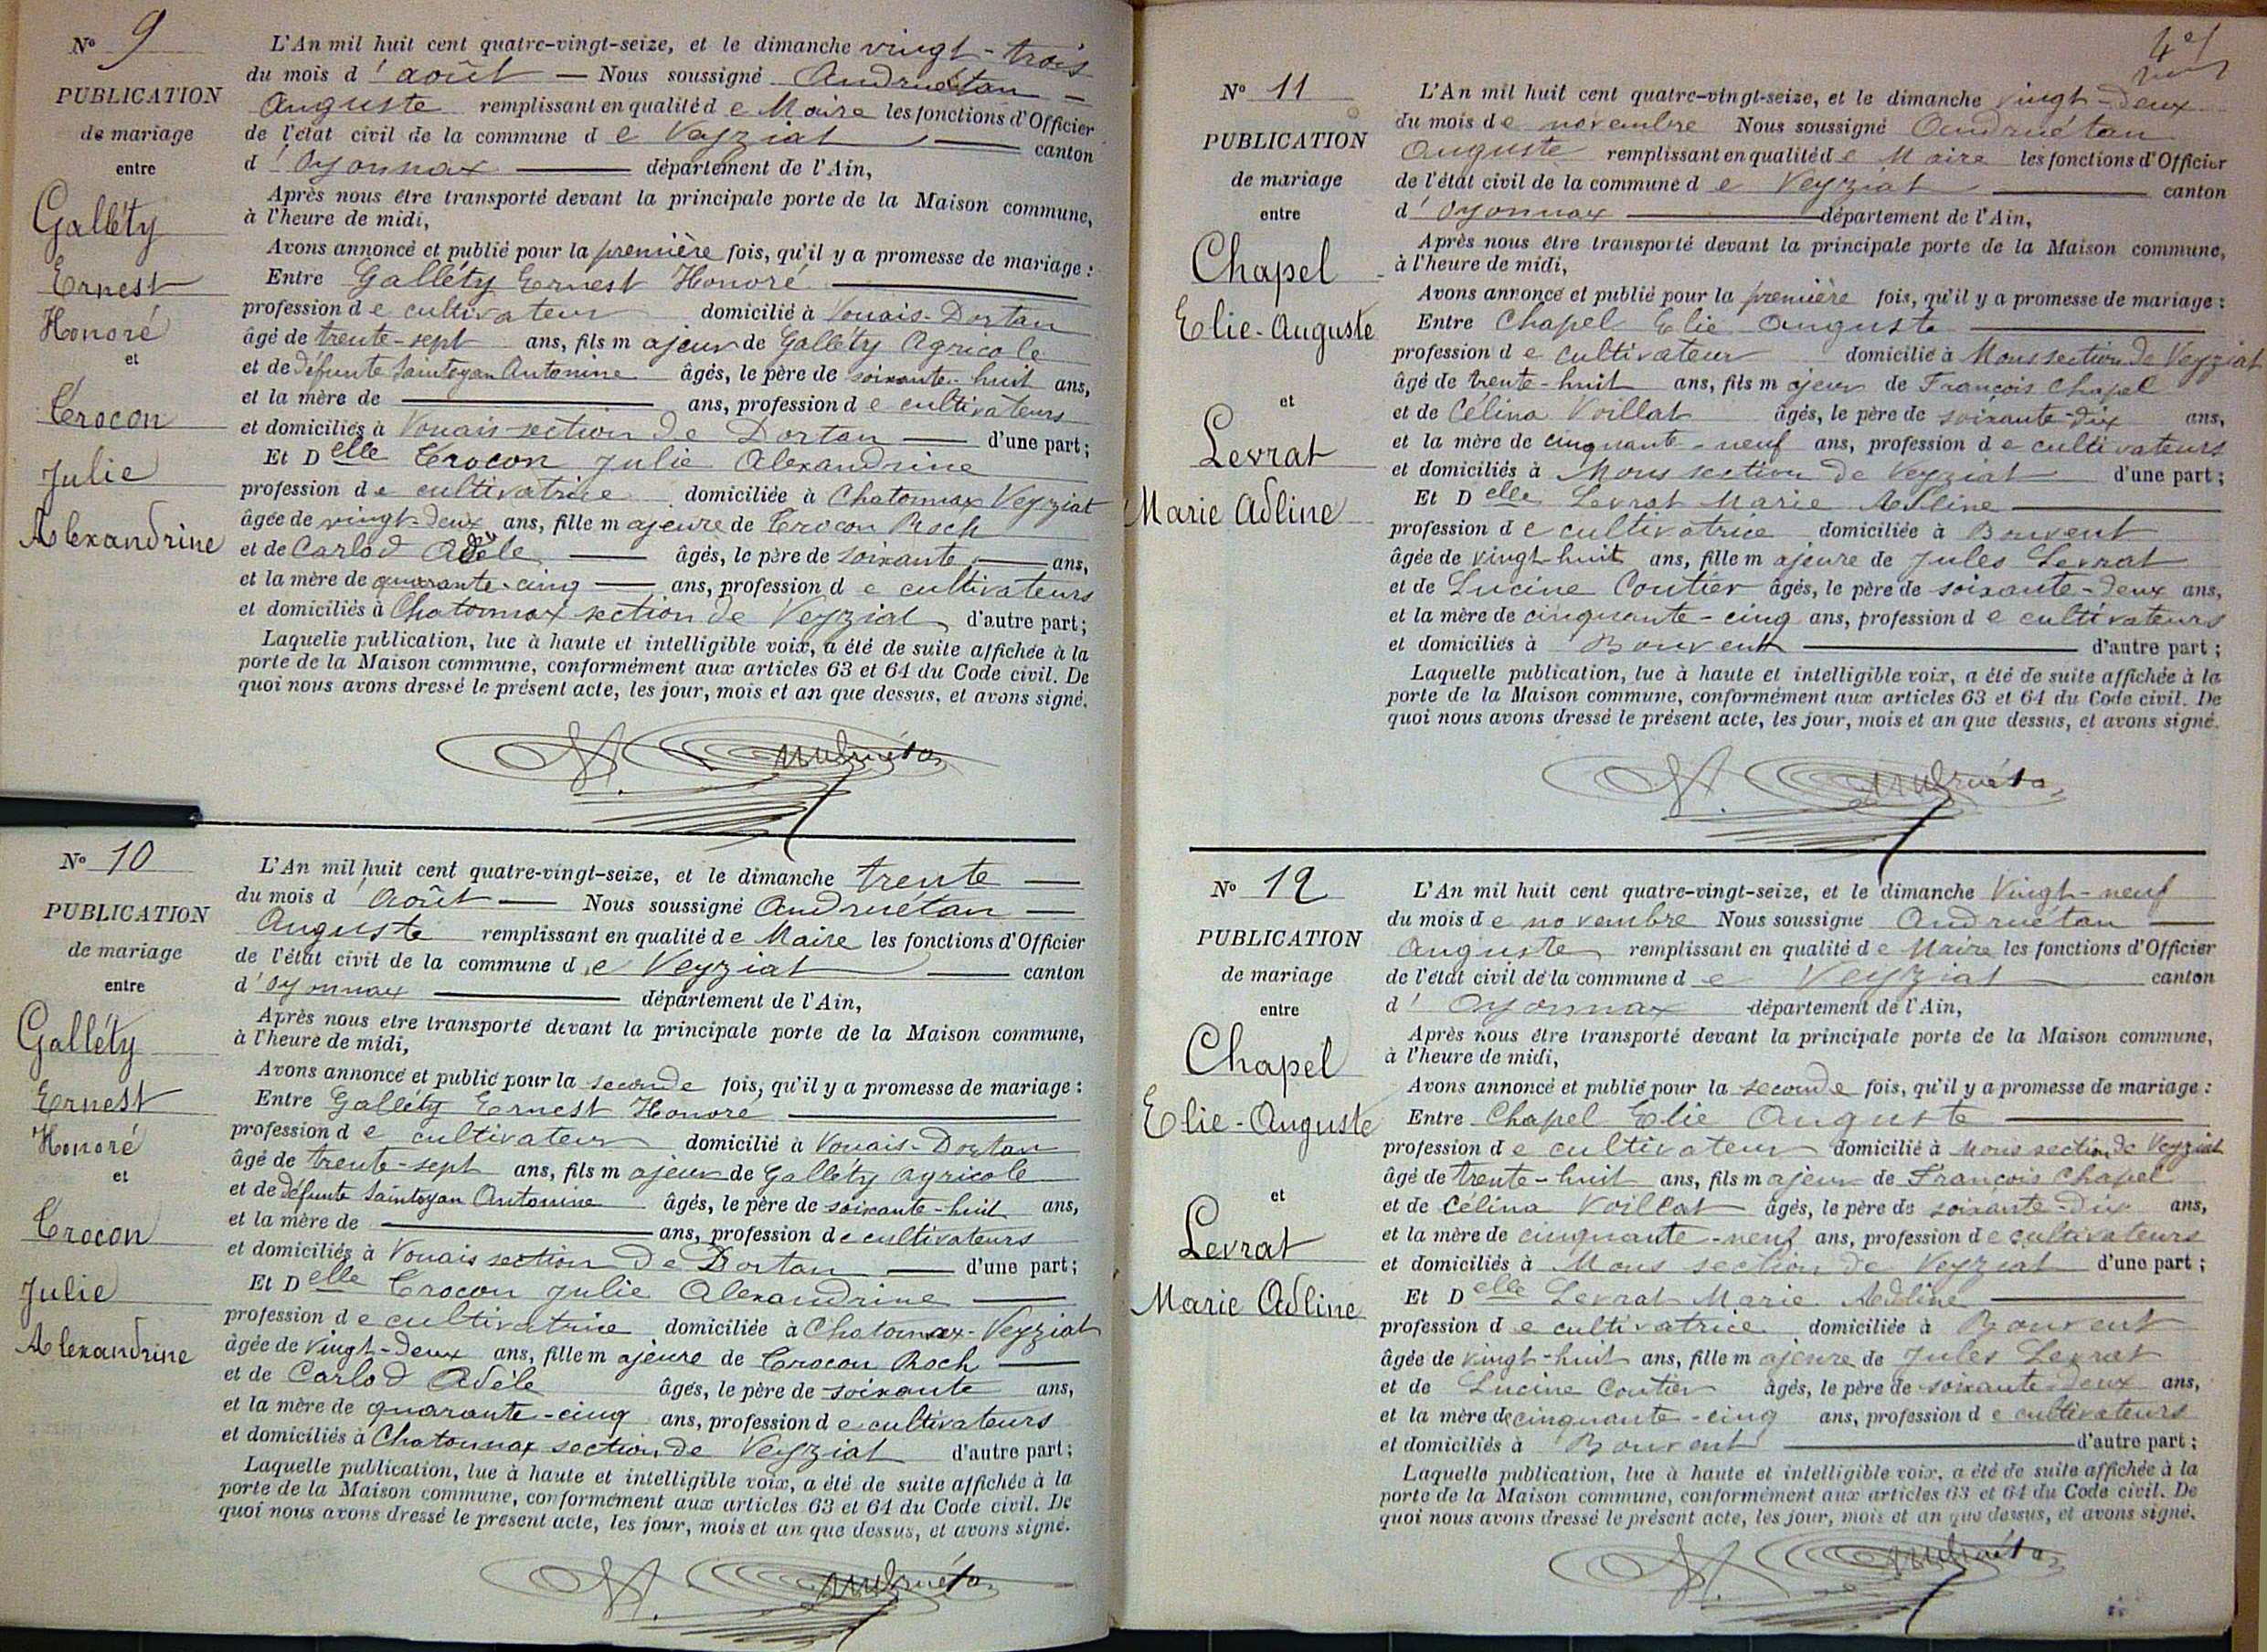 N° 9
PUBLICATION
de mariage
entre
Galléty
Ernest
Honoré
et
Crocon
Julie
Alexandrine
L'An mil huit cent quatre-vingt-seize, et le dimanche vingt-trois
du mois d'août — Nous soussigné Andruétan —
Auguste remplissant en qualité de Maire les fonctions d'Officier
de l'état civil de la commune de Veyziat — canton
d'Oyonnax — département de l'Ain,
Après nous être transporté devant la principale porte de la Maison commune,
à l'heure de midi,
Avons annoncé et publié pour la première fois, qu'il y a promesse de mariage :
Entre Galléty Ernest Honoré —
profession de cultivateur domicilié à Vouais-Dortan
âgé de trente-sept ans, fils majeur de Galléty Agricole
et de défunte Saintoyan Antonine âgés, le père de soixante-huit ans,
et la mère de — ans, profession de cultivateurs
et domiciliés à Vouais section de Dortan — d'une part ;
Et Delle Crocon Julie Alexandrine
profession de cultivatrice domiciliée à Chatonnax Veyziat
âgée de vingt-deux ans, fille majeure de Crocon Roch
et de Carlod Adèle — âgés, le père de soixante — ans,
et la mère de quarante-cinq — ans, profession de cultivateurs
et domiciliés à Chatonnax section de Veyziat d'autre part ;
Laquelle publication, lue à haute et intelligible voix, a été de suite affichée à la
porte de la Maison commune, conformément aux articles 63 et 64 du Code civil. De
quoi nous avons dressé le présent acte, les jour, mois et an que dessus, et avons signé.
A. Andruétan
N° 10
PUBLICATION
de mariage
entre
Galléty
Ernest
Honoré
et
Crocon
Julie
Alexandrine
L'An mil huit cent quatre-vingt-seize, et le dimanche trente —
du mois d'Août — Nous soussigné Andruétan —
Auguste remplissant en qualité de Maire les fonctions d'Officier
de l'état civil de la commune de Veyziat — canton
d'Oyonnax — département de l'Ain,
Après nous être transporté devant la principale porte de la Maison commune,
à l'heure de midi,
Avons annoncé et publié pour la seconde fois, qu'il y a promesse de mariage :
Entre Galléty Ernest Honoré —
profession de cultivateur domicilié à Vouais-Dortan
âgé de trente-sept ans, fils majeur de Galléty Agricole
et de défunte Saintoyan Antonine âgés, le père de soixante-huit ans,
et la mère de — ans, profession de cultivateurs
et domiciliés à Vouais section de Dortan — d'une part ;
Et Delle Crocon Julie Alexandrine —
profession de cultivatrice domiciliée à Chatonnax-Veyziat
âgée de vingt-deux ans, fille majeure de Crocon Roch —
et de Carlod Adèle âgés, le père de soixante ans,
et la mère de quarante-cinq ans, profession de cultivateurs
et domiciliés à Chatonnax section de Veyziat d'autre part ;
Laquelle publication, lue à haute et intelligible voix, a été de suite affichée à la
porte de la Maison commune, conformément aux articles 63 et 64 du Code civil. De
quoi nous avons dressé le présent acte, les jour, mois et an que dessus, et avons signé.
A. Andruétan
4e
N° 11
PUBLICATION
de mariage
entre
Chapel
Elie-Auguste
et
Levrat
Marie Adline
L'An mil huit cent quatre-vingt-seize, et le dimanche vingt-deux
du mois de novembre Nous soussigné Andruétan
Auguste remplissant en qualité de Maire les fonctions d'Officier
de l'état civil de la commune de Veyziat — canton
d'Oyonnax — département de l'Ain,
Après nous être transporté devant la principale porte de la Maison commune,
à l'heure de midi,
Avons annoncé et publié pour la première fois, qu'il y a promesse de mariage :
Entre Chapel Elie Auguste —
profession de cultivateur domicilié à Mous section de Veyziat
âgé de trente-huit ans, fils majeur de François Chapel
et de Célina Voillat âgés, le père de soixante-dix ans,
et la mère de cinquante-neuf ans, profession de cultivateurs
et domiciliés à Mous section de Veyziat d'une part ;
Et Delle Levrat Marie Adline —
profession de cultivatrice domiciliée à Bouvent
âgée de vingt-huit ans, fille majeure de Jules Levrat
et de Lucine Coutier âgés, le père de soixante-deux ans,
et la mère de cinquante-cinq ans, profession de cultivateurs
et domiciliés à Bouvent — d'autre part ;
Laquelle publication, lue à haute et intelligible voix, a été de suite affichée à la
porte de la Maison commune, conformément aux articles 63 et 64 du Code civil. De
quoi nous avons dressé le présent acte, les jour, mois et an que dessus, et avons signé.
A. Andruétan
N° 12
PUBLICATION
de mariage
entre
Chapel
Elie-Auguste
et
Levrat
Marie Adline
L'An mil huit cent quatre-vingt-seize, et le dimanche Vingt-neuf
du mois de novembre Nous soussigné Andruétan —
Auguste remplissant en qualité de Maire les fonctions d'Officier
de l'état civil de la commune de Veyziat — canton
d'Oyonnax département de l'Ain,
Après nous être transporté devant la principale porte de la Maison commune,
à l'heure de midi,
Avons annoncé et publié pour la seconde fois, qu'il y a promesse de mariage :
Entre Chapel Elie Auguste —
profession de cultivateur domicilié à Mous section de Veyziat
âgé de trente-huit ans, fils majeur de François Chapel
et de Célina Voillat âgés, le père de soixante-dix ans,
et la mère de cinquante-neuf ans, profession de cultivateurs
et domiciliés à Mous section de Veyziat d'une part ;
Et Delle Levrat Marie Adline —
profession de cultivatrice domiciliée à Bouvent
âgée de vingt-huit ans, fille majeure de Jules Levrat
et de Lucine Coutier âgés, le père de soixante-deux ans,
et la mère de cinquante-cinq ans, profession de cultivateurs
et domiciliés à Bouvent — d'autre part ;
Laquelle publication, lue à haute et intelligible voix, a été de suite affichée à la
porte de la Maison commune, conformément aux articles 63 et 64 du Code civil. De
quoi nous avons dressé le présent acte, les jour, mois et an que dessus, et avons signé.
A. Andruétan